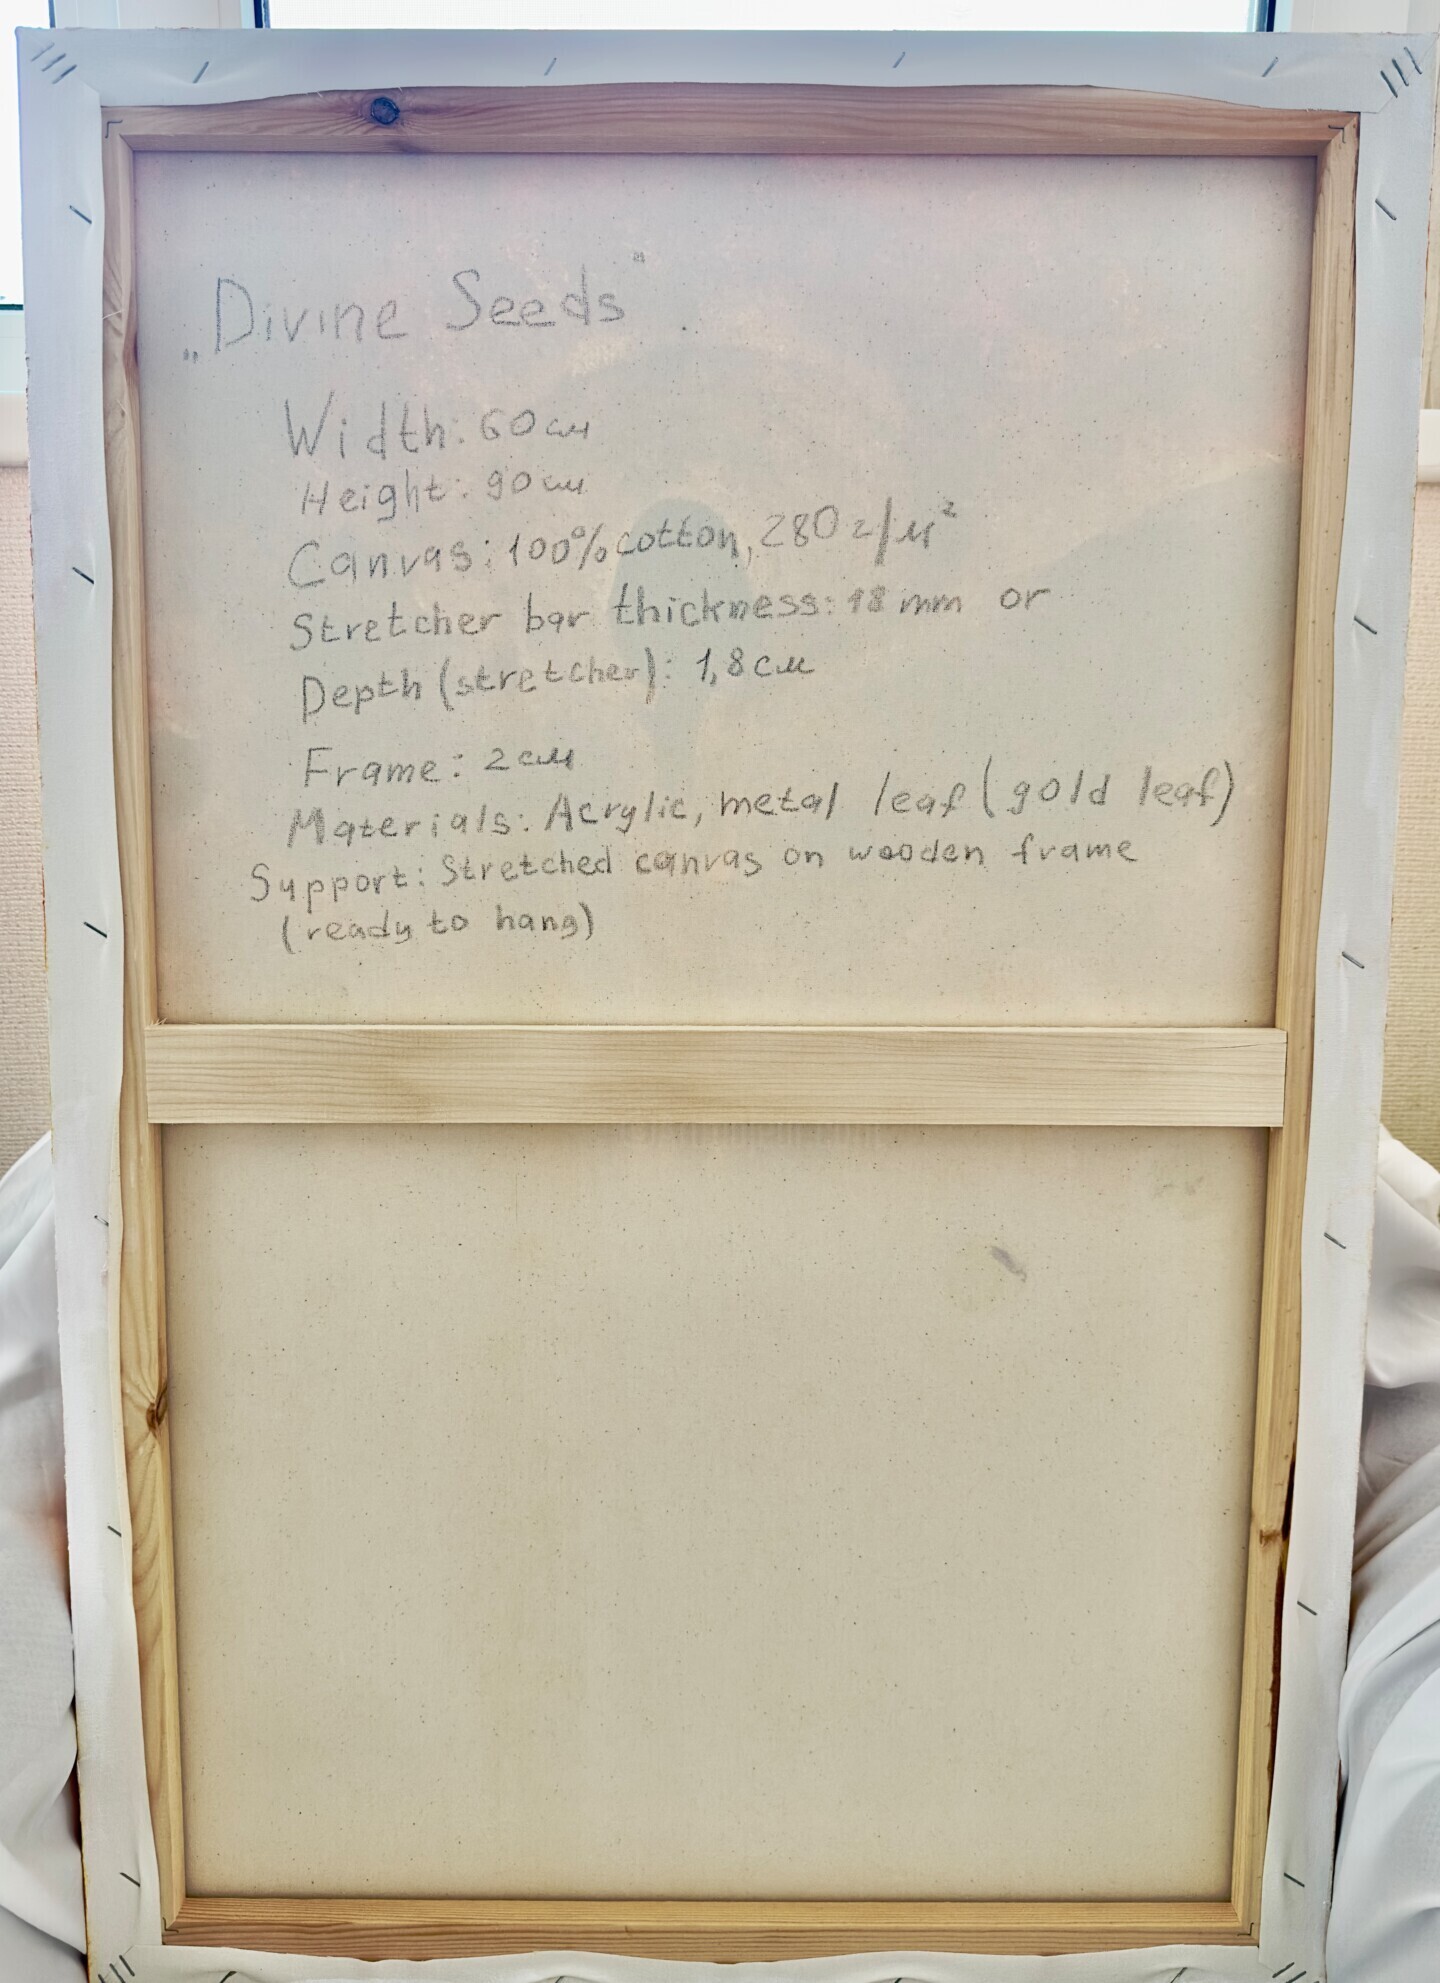 „Divine Seeds".
Width: 60 см
Height: 90 см
Canvas: 100% cotton, 280 г/м²
Stretcher bar thickness: 18 mm or
Depth (stretcher): 1,8 см
Frame: 2 см
Materials: Acrylic, metal leaf (gold leaf)
Support: Stretched canvas on wooden frame
(ready to hang)